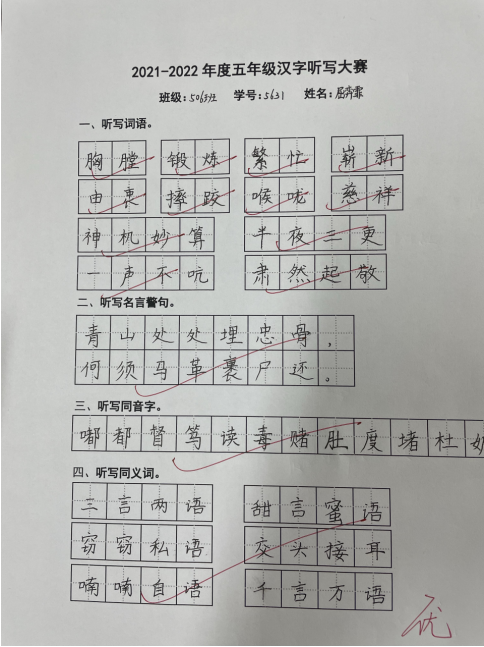 2021-2022年度五年级汉字听写大赛
班级:506班 学号:5631 姓名:屈霄霏
一、听写词语。
胸膛 锻炼 繁忙 崭新
由衷 摔跤 喉咙 慈祥
神机妙算 半夜三更
一声不吭 肃然起敬
二、听写名言警句。
青山处处埋忠骨,
何须马革裹尸还。
三、听写同音字。
嘟都督笃读毒赌肚度堵杜妒
四、听写同义词。
三言两语 甜言蜜语
窃窃私语 交头接耳
喃喃自语 千言万语
优